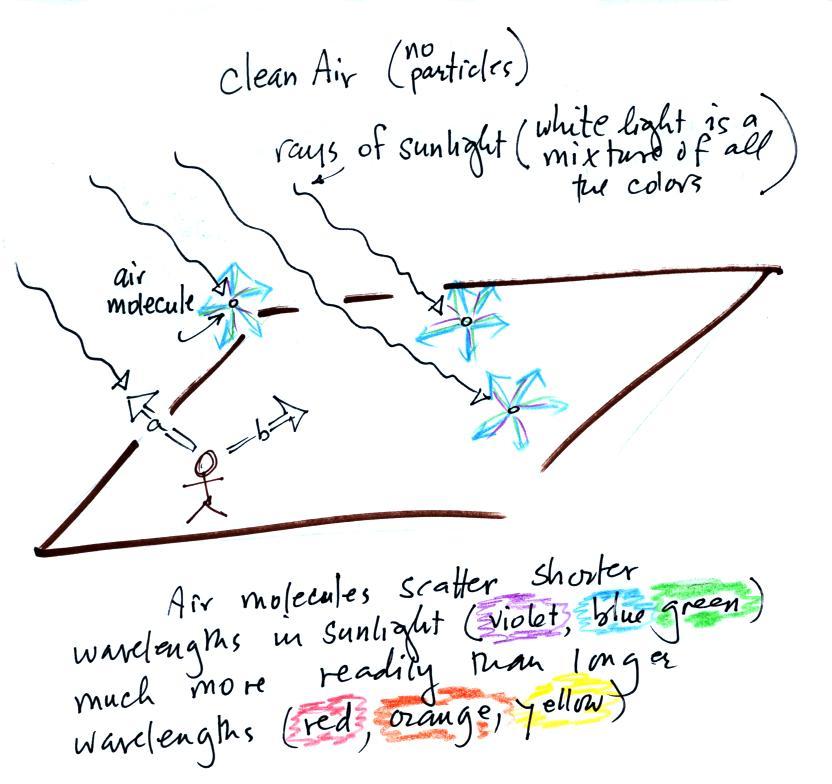 clean Air (no particles)
rays of sunlight (white light is a
mixture of all
the colors)
air
molecule
a
b
Air molecules scatter shorter
wavelengths in sunlight (violet, blue green)
much more readily than longer
wavelengths (red, orange, yellow)